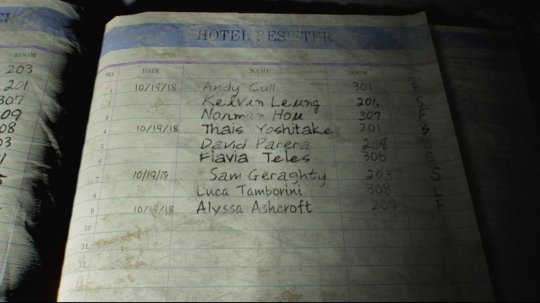 ROOM
203
201
307
HOTEL REGISTER
NO. DATE NAME ROOM
1 10/19/18 Andy Cull 301 F
2 Kelvin Leung S
3 Norman Hou 307 F
4 10/19/18 Thais Yoshitake 201 S
5 David Parera 208
6 Flavia Teles 306 S
7 10/19/18 Sam Geraghty 203 S
8 Luca Tamborini 308 L
9 10/19/18 Alyssa Ashcroft 204 F
10
11
12